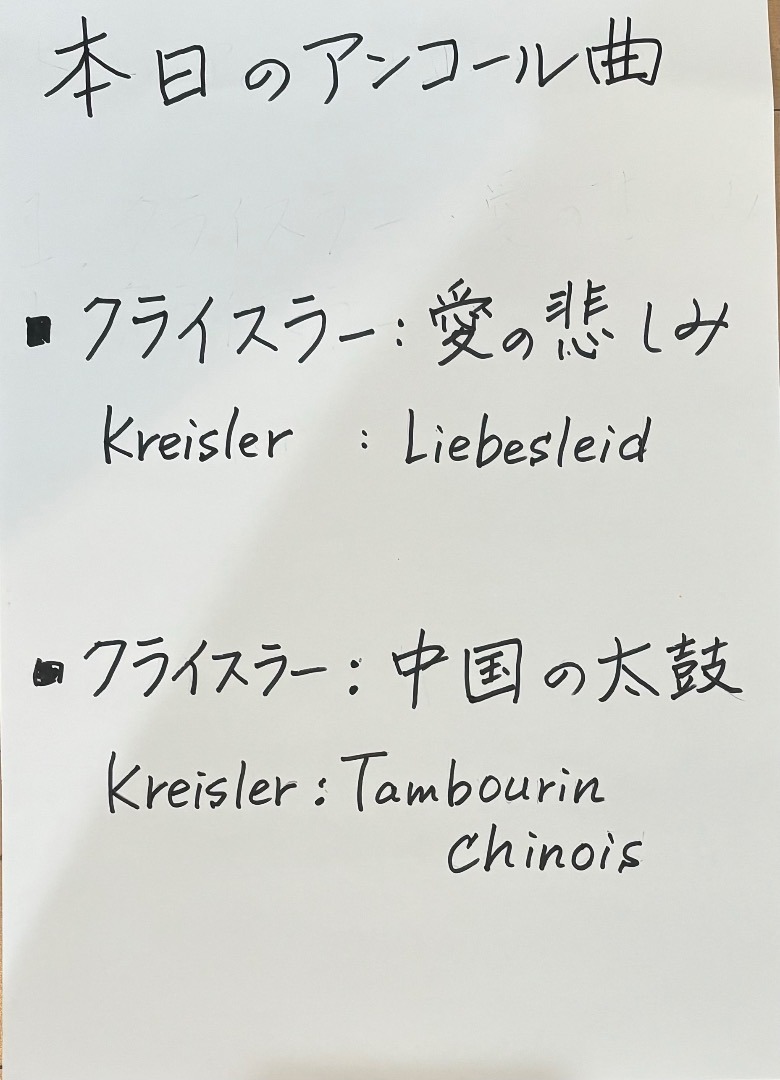 本日のアンコール曲
■ クライスラー：愛の悲しみ
Kreisler : Liebesleid
■ クライスラー：中国の太鼓
Kreisler : Tambourin
Chinois